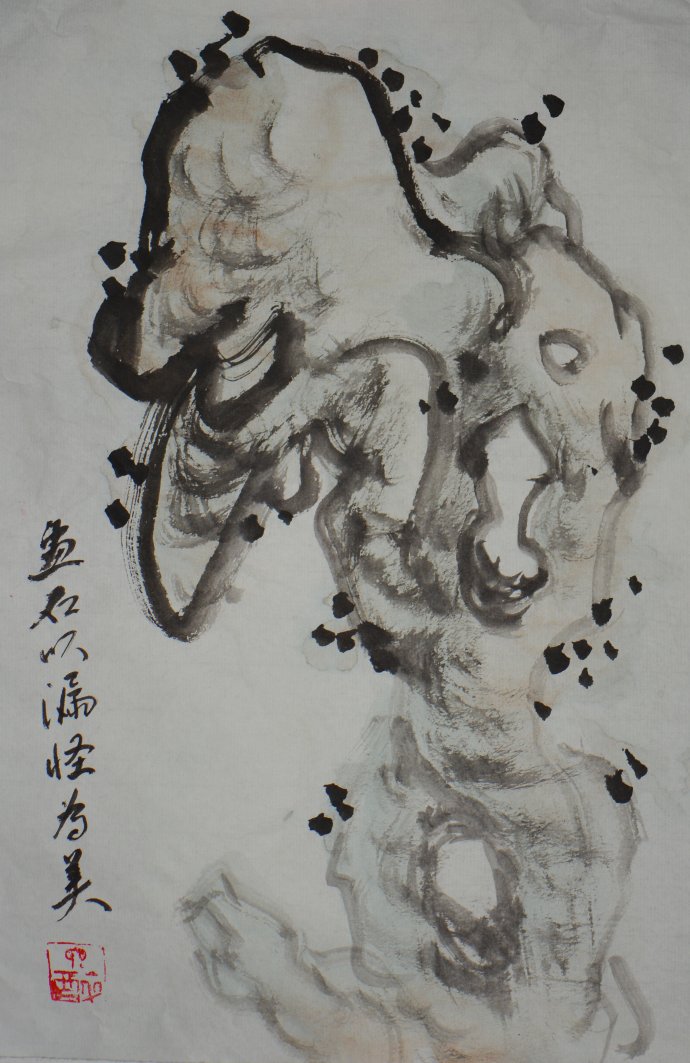 画石以漏怪为美